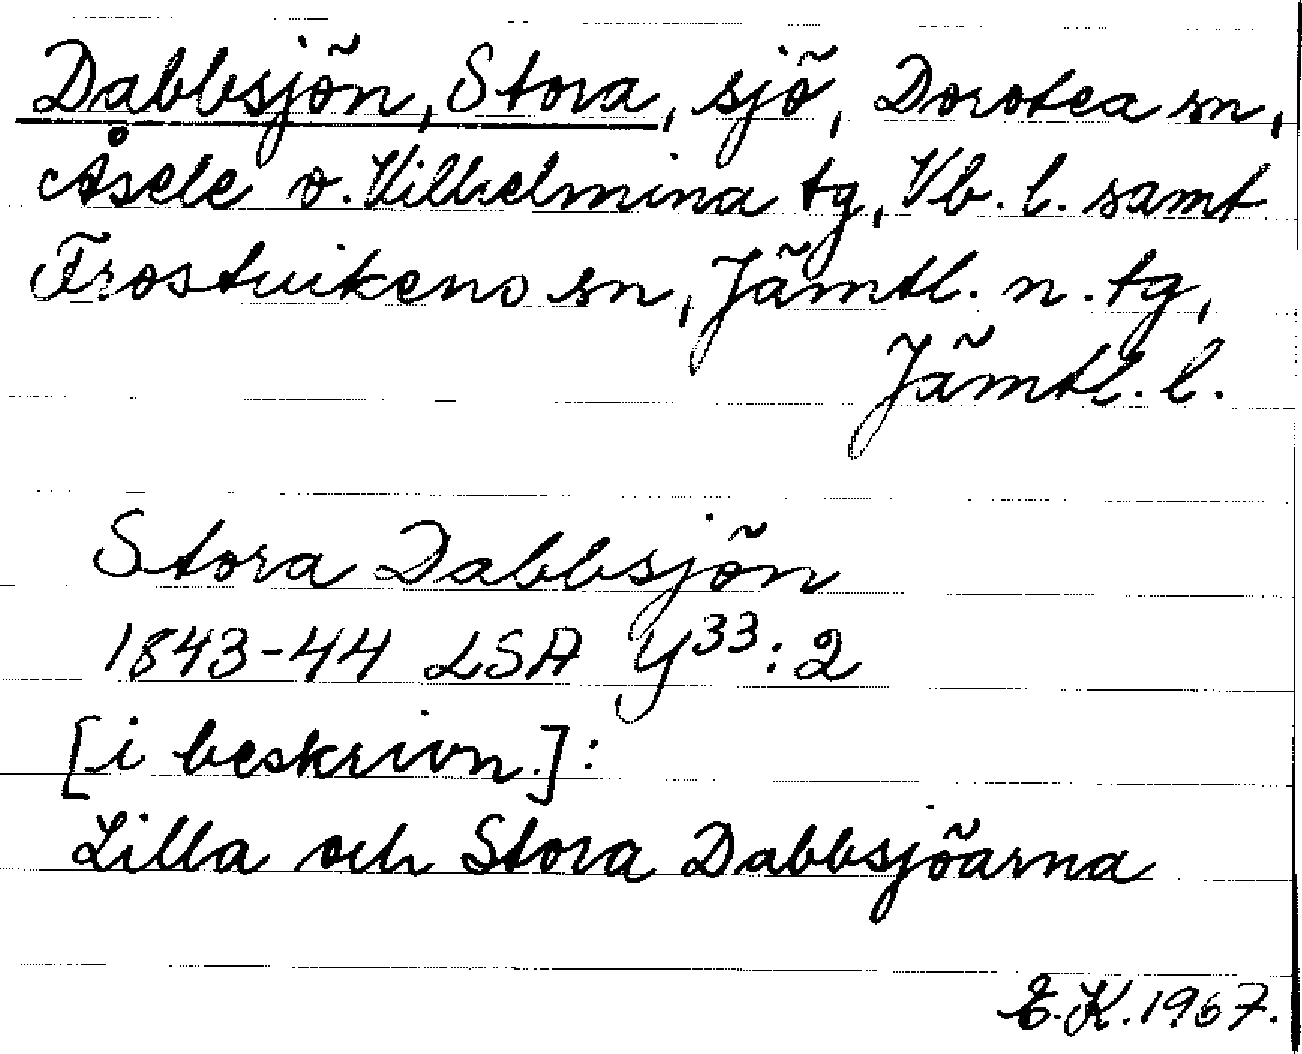 Dabbsjön, Stora, sjö, Dorotea sn,
Åsele o. Vilhelmina tg, Vb. l. samt
Frostvikens sn, Jämtl. n. tg,
Jämtl. l.
Stora Dabbsjön
1843-44 LSA Y³³:2
[i beskrivn.]:
Lilla och Stora Dabbsjöarna
E.K. 1967.